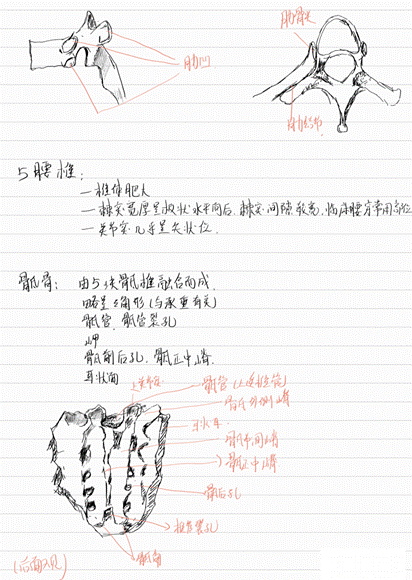 肋凹
肋骨头
肋结节
5腰椎：
— 椎体肥大
— 棘突宽厚呈板状水平向后，棘突间隙较宽，临床腰穿常用部位
— 关节突几乎呈矢状位.
骶骨： 由5块骶椎融合而成.
略呈三角形（与承重有关）
骶管、骶管裂孔
岬
骶前后孔、骶正中嵴.
耳状面
上关节突
骶管
骶外侧嵴
骶中间嵴
骶正中嵴
骶后孔
骶管裂孔
骶角
（后面入几）